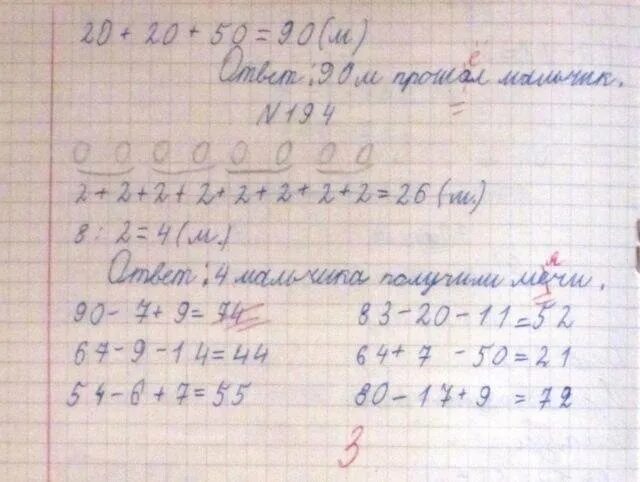 20 + 20 + 50 = 90 (м)
е
Ответ: 90 м прошол мальчик.
N 194
0 0 0 0 0 0 0 0
2 + 2 + 2 + 2 + 2 + 2 + 2 + 2 = 26 (м.)
8 : 2 = 4 (м.)
я
Ответ: 4 мальчика получили мечи.
90 - 7 + 9 = 74 83 - 20 - 11 = 52
67 - 9 - 14 = 44 64 + 7 - 50 = 21
54 - 6 + 7 = 55 80 - 17 + 9 = 72
3